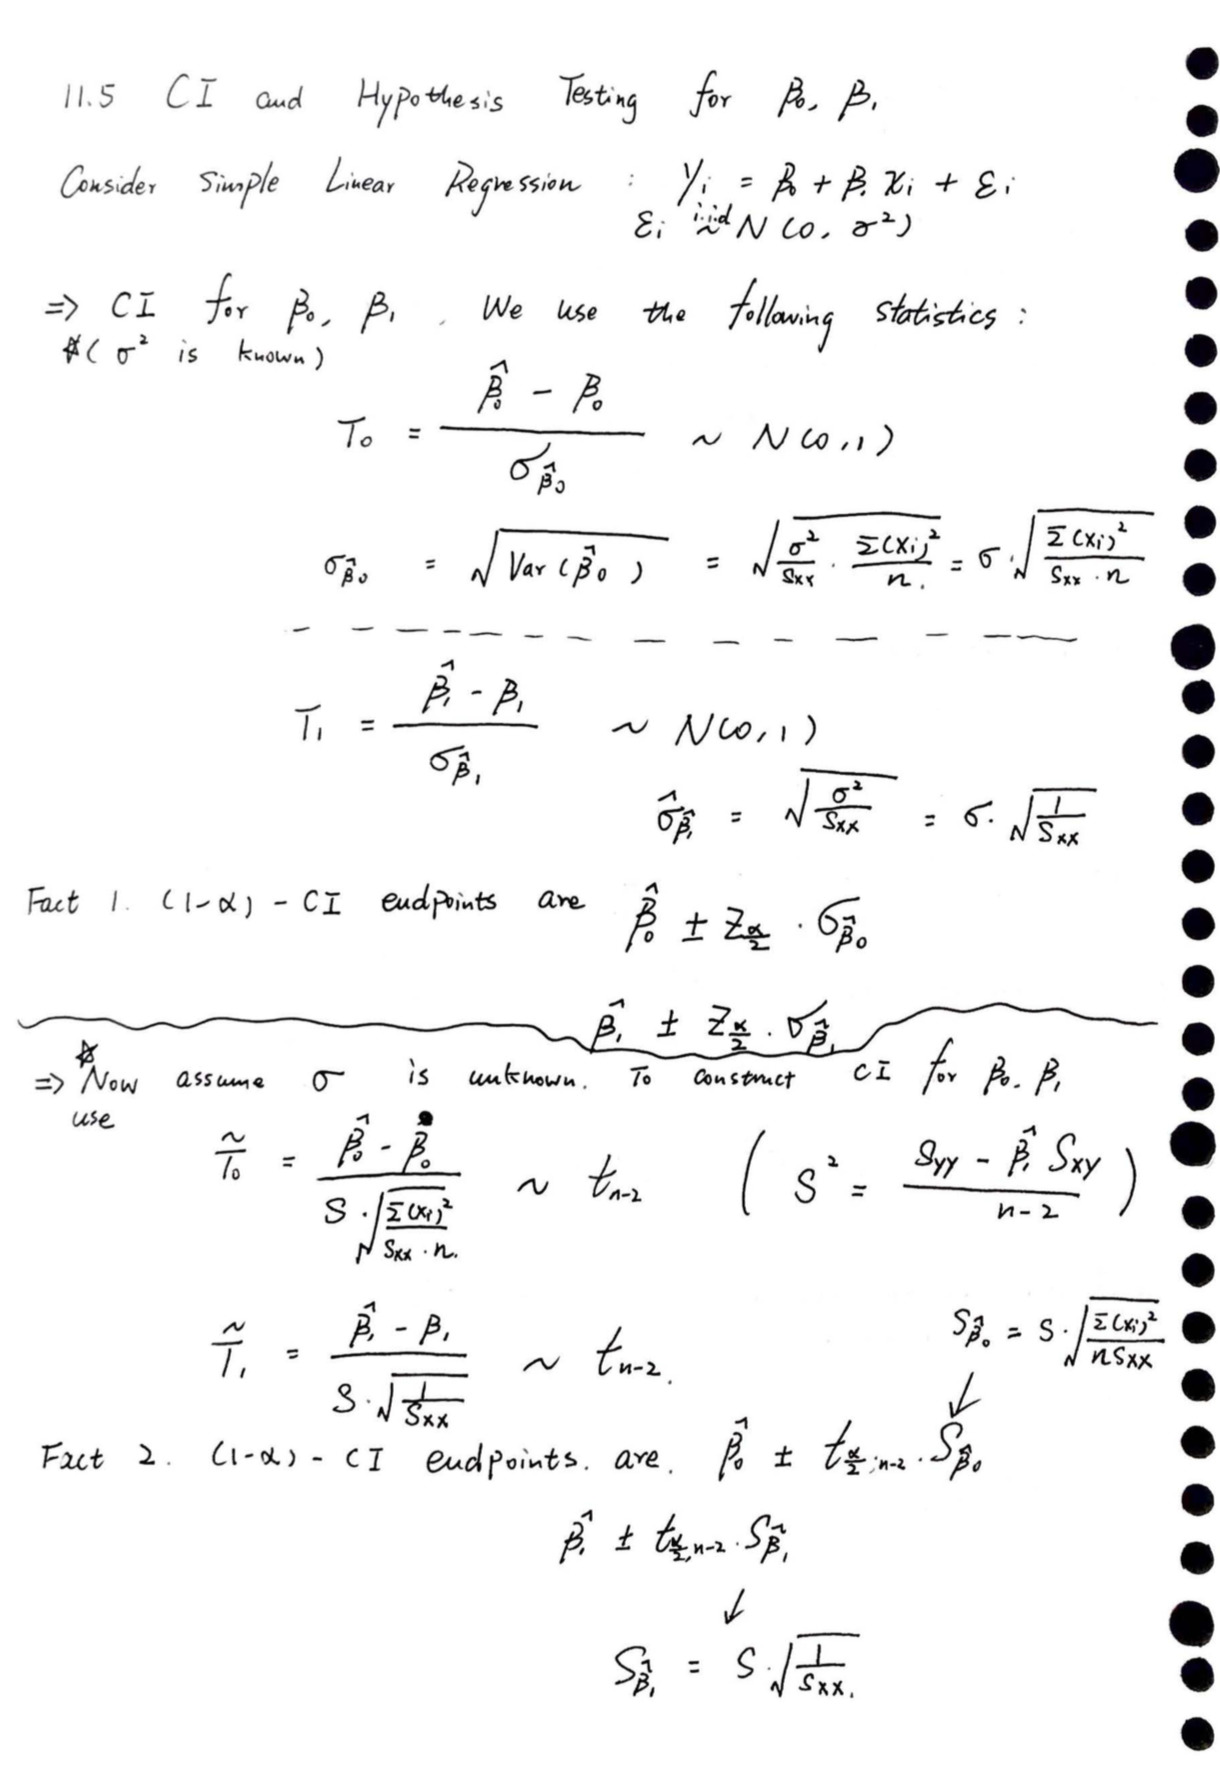 11.5 CI and Hypothesis Testing for β₀, β₁
Consider Simple Linear Regression : Yᵢ = β₀ + β₁ xᵢ + εᵢ
εᵢ i.i.d ~ N(0, σ²)
=> CI for β₀, β₁ . We use the following statistics :
☆( σ² is known)
T₀ = (β̂₀ - β₀) / σ_β̂₀ ~ N(0,1)
σ_β̂₀ = √Var(β̂₀) = √(σ²/Sxx · Σ(xᵢ)²/n) = σ·√(Σ(xᵢ)²/(Sxx · n))
T₁ = (β̂₁ - β₁) / σ_β̂₁ ~ N(0,1)
σ̂_β̂₁ = √(σ²/Sxx) = σ·√(1/Sxx)
Fact 1. (1-α) - CI endpoints are β̂₀ ± Z_α/2 · σ_β̂₀
β̂₁ ± Z_α/2 · σ_β̂₁
☆
=> Now assume σ is unknown. To construct CI for β₀, β₁
use
T̃₀ = (β̂₀ - β₀) / (S·√(Σ(xᵢ)²/(Sxx · n))) ~ t_n-2 ( S² = (Syy - β̂₁ Sxy) / (n-2) )
T̃₁ = (β̂₁ - β₁) / (S·√(1/Sxx)) ~ t_n-2.
S_β̂₀ = S·√(Σ(xᵢ)²/(nSxx))
↓
Fact 2. (1-α) - CI endpoints. are. β̂₀ ± t_α/2;n-2 · S_β̂₀
β̂₁ ± t_α/2,n-2 · S_β̂₁
↓
S_β̂₁ = S·√(1/Sxx.)